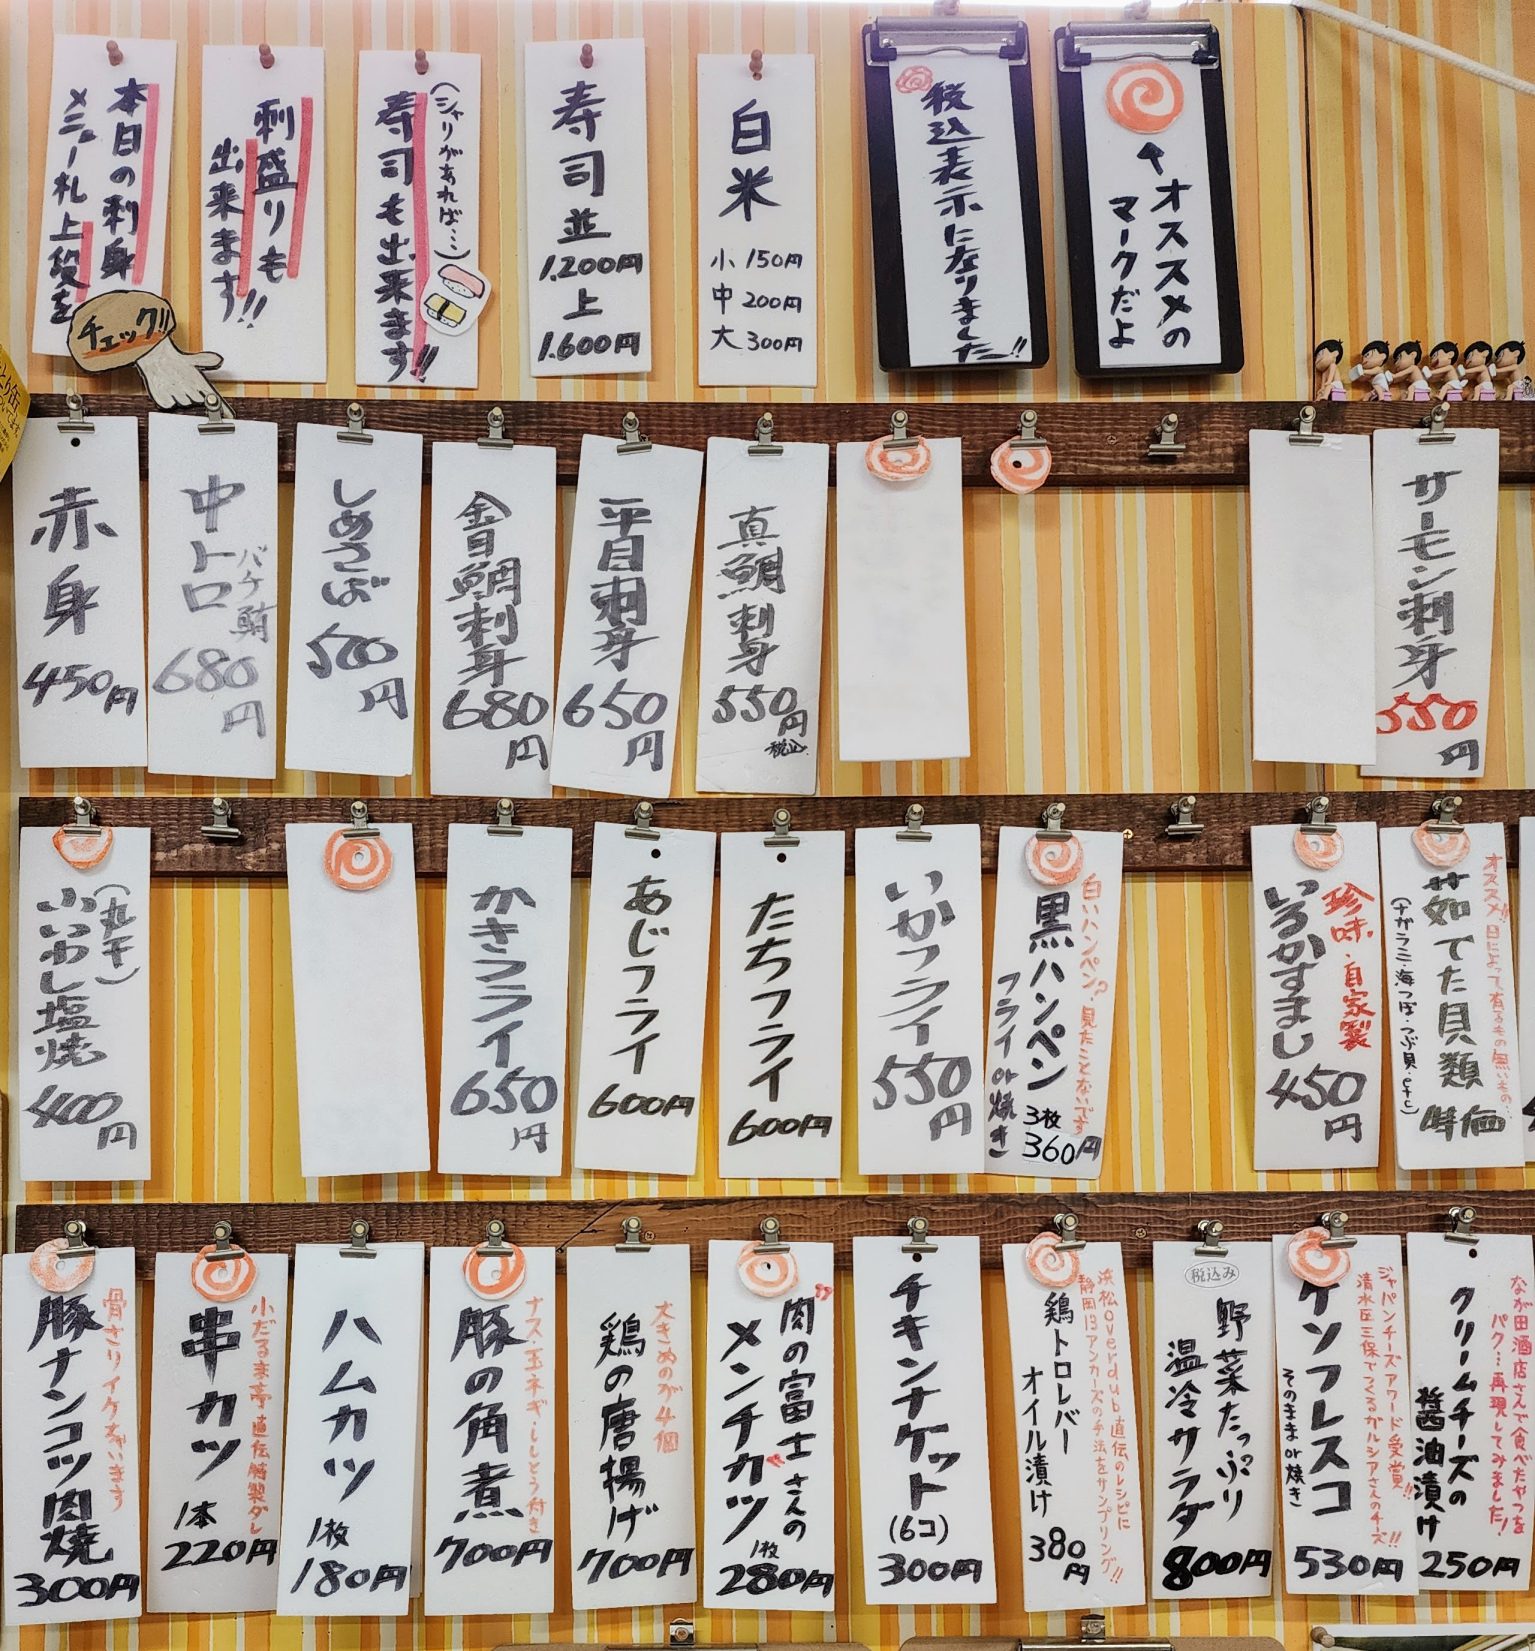 本日の刺身
メニュー札上段を
チェック!!
刺盛りも
出来ます!!
(シャリがあれば…)
寿司も出来ます!!
寿司並
1.200円
上
1.600円
白米
小 150円
中 200円
大 300円
税込表示になりました!!
オススメの
マークだよ
赤身
450円
中トロ
バチ鮪
680円
しめさば
500円
金目鯛刺身
680円
平目刺身
650円
真鯛刺身
550円
税込
サーモン刺身
550円
(丸干)
小いわし塩焼
400円
かきフライ
650円
あじフライ
600円
たちフライ
600円
いかフライ
550円
白いハンペン?見たことないです
黒ハンペン
フライor焼き
3枚
360円
珍味・自家製
いるかすまし
450円
オススメ!!日によって有るもの無いもの…
茹でた貝類
(ナガラミ・海つぼ・つぶ貝・etc)
時価
骨さりイケちゃいます
豚ナンコツ肉焼
300円
小だるま亭直伝特製ダレ
串カツ
1本
220円
ハムカツ
1枚
180円
ナス・玉ネギ・ししとう付き
豚の角煮
700円
大きめのが4個
鶏の唐揚げ
700円
肉の富士さんの
メンチカツ
1枚
280円
チキンナゲット
(6コ)
300円
浜松overdub直伝のレシピに
静岡13アンカーズの手法をサンプリング!!
鶏トロレバー
オイル漬け
380円
税込み
野菜たっぷり
温冷サラダ
800円
ジャパンチーズアワード受賞!!
清水区三保でつくるガルシアさんのチーズ!!
ケソフレスコ
そのままor焼き
530円
なが田酒店さんで食べたやつを
パク…再現してみました!
クリームチーズの
醤油漬け
250円